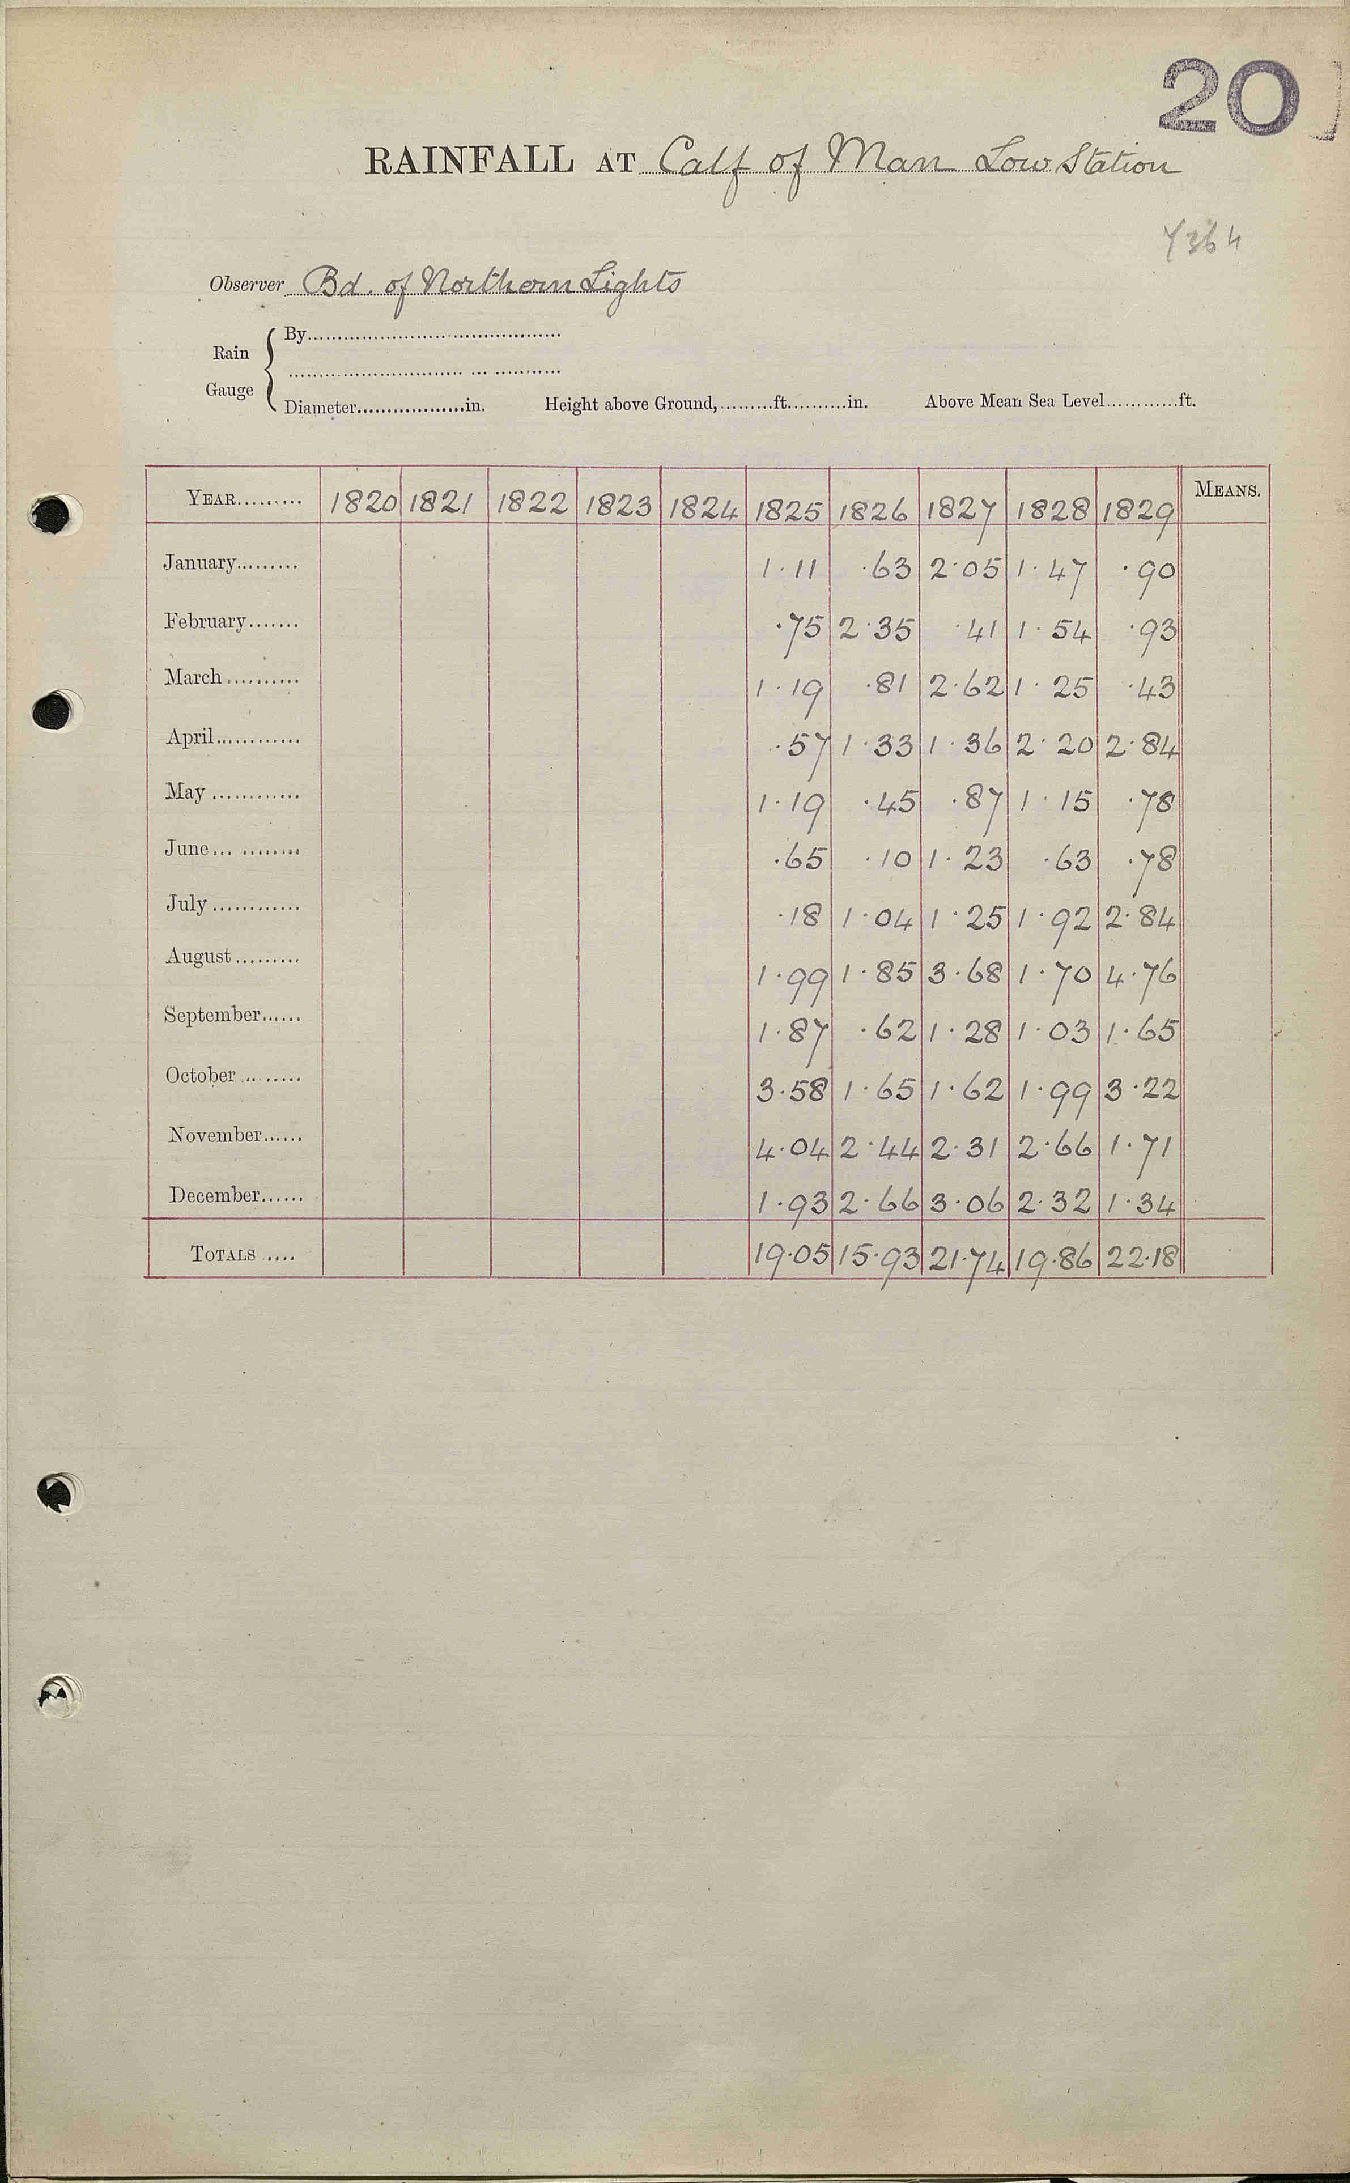 20
RAINFALL AT Calf of Man Low Station
7364
Observer Bd. of Northern Lights
Rain Gauge { By
Diameter in. Height above Ground, ft. in. Above Mean Sea Level ft.
YEAR 1820 1821 1822 1823 1824 1825 1826 1827 1828 1829 MEANS.
January 1.11 .63 2.05 1.47 .90
February .75 2.35 .41 1.54 .93
March 1.19 .81 2.62 1.25 .43
April .57 1.33 1.36 2.20 2.84
May 1.19 .45 .87 1.15 .78
June .65 .10 1.23 .63 .78
July .18 1.04 1.25 1.92 2.84
August 1.99 1.85 3.68 1.70 4.76
September 1.87 .62 1.28 1.03 1.65
October 3.58 1.65 1.62 1.99 3.22
November 4.04 2.44 2.31 2.66 1.71
December 1.93 2.66 3.06 2.32 1.34
TOTALS 19.05 15.93 21.74 19.86 22.18